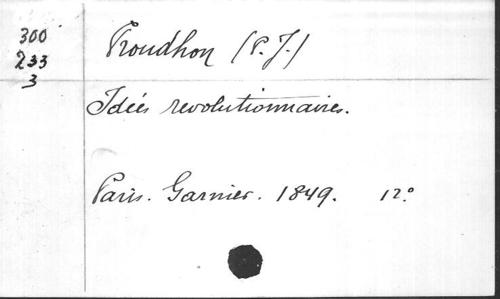 300
233
3
Proudhon (P. J.)
Idées revolutionnaires.
Paris. Garnier. 1849. 12°